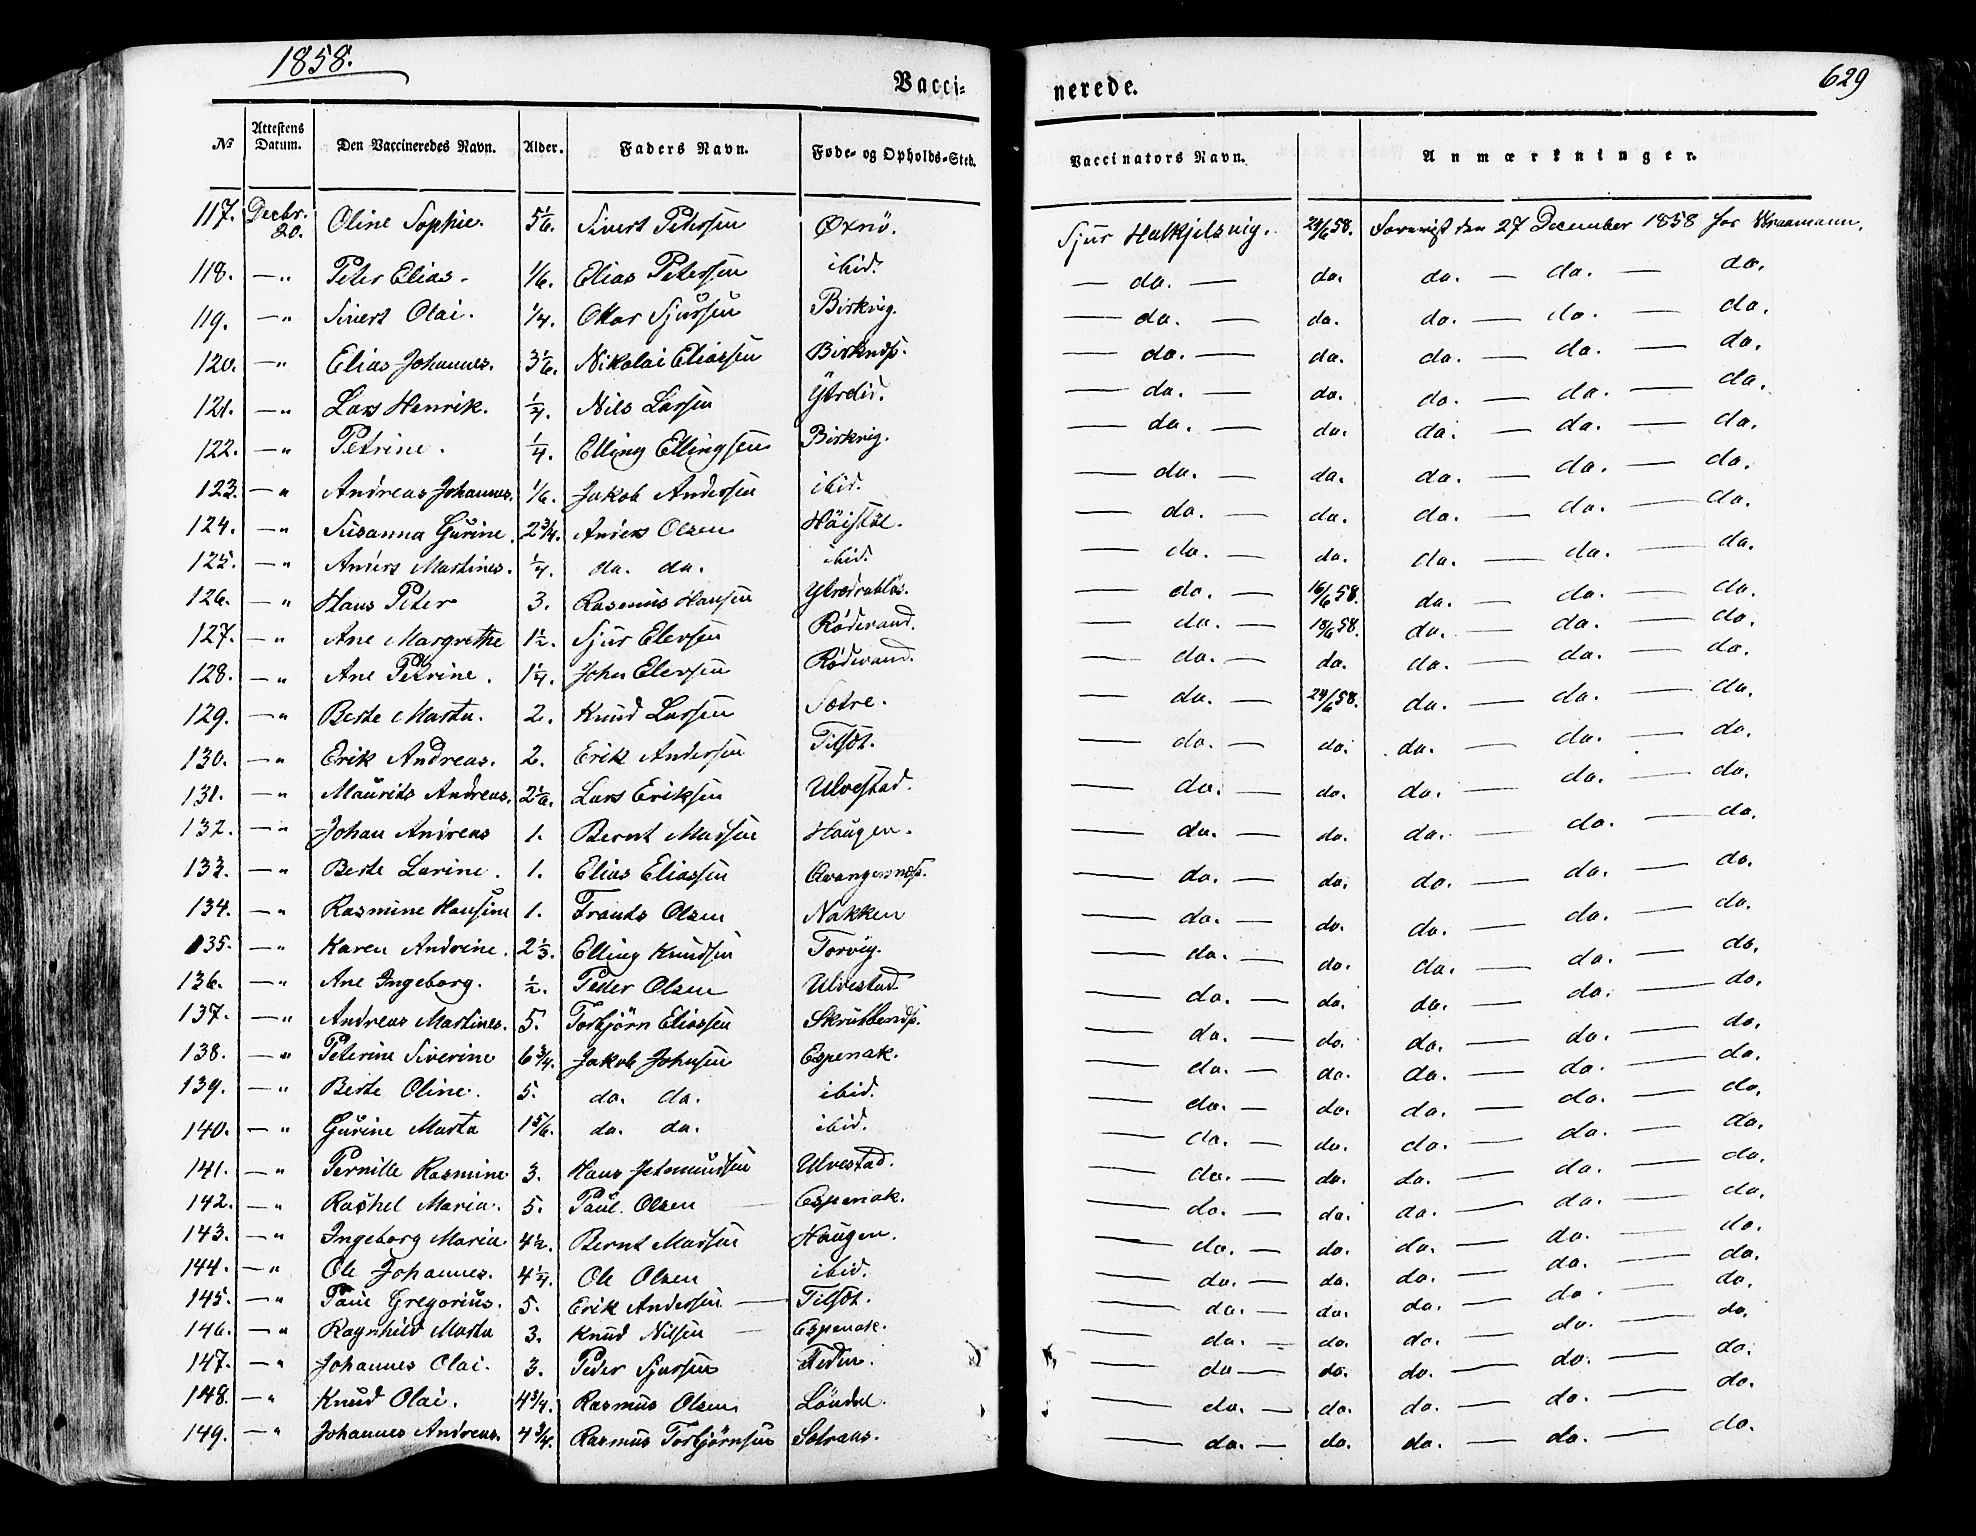 1858.
629
Vacci-
nerede.
No Attestens Datum. Den Vaccineredes Navn. Alder. Faders Navn. Føde- og Opholds-Sted. Vaccinators Navn. Anmærkninger.
117. Decbr. 20. Oline Sophie. 5 1/6 Sivert Petersen Øxnö. Sjur Halkjelsvig. 24/6 58. Forevist den 27 December 1858 for
118. — " Peter Elias. 1/6. Elias Peterssen ibid. — do. — do. do. — do. — do.
119. — " Sivert Olai. 1/4. Sjursen Birkvig. — do. — do. do. — do. — do.
120. — " Elias Johannes. 3 1/6. Nikolai Eliassen Birkndsp. — do. — do. do. — do. — do.
121. — " Lars Henrik. 1/4. Nils Larsen — do. — do. do. — do. — do.
122. — " Petrine. 1/4. Elling Ellingsen Birkvig. — do. — do. do. — do. — do.
123. — " Andreas Johannes. 1/6. Jakob Andersen ibid. — do. — do. do. — do. — do.
124. — " Susanna Gurine. 2 3/4. Anders Olsen Höistöl. — do. — do. do. — do. — do.
125. — " Anders Martines. 1/4. do. do. ibid. — do. — do. do. — do. — do.
126. — " Hans Peter 3. Rasmus Hansen — do. — 16/6 58. do. — do. — do.
127. — " Ane Margrethe 1 1/2. Sjur Elevsen Rödsrand. — do. — 18/6 58. do. — do. — do.
128. — " Ane Petrine. 1 1/4. John Elevsen Rödsrand. — do. — do. do. — do. — do.
129. — " Berte Marta. 2. Knud Larsen Sætre. — do. — 24/6 58. do. — do. — do.
130. — " Erik Andreas. 2. Erik Andersen — do. — do. do. — do. — do.
131. — " Maurits Andreas. 2 1/6. Lars Eriksen Ulvestad. — do. — do. do. — do. — do.
132. — " Johan Andreas 1. Bernt Madsen Haugen. — do. — do. do. — do. — do.
133. — " Berte Larine. 1. Elias Eliassen — do. — do. do. — do. — do.
134. — " Rasmine Hansine 1. Frants Olsen Nakken — do. — do. do. — do. — do.
135. — " Karen Andrine. 2 1/3. Elling Knudsen Torvig. — do. — do. do. — do. — do.
136. — " Ane Ingeborg. 1/2. Peder Olsen Ulvestad — do. — do. do. — do. — do.
137. — " Andreas Martines. 5. Torbjörn Eliassen — do. — do. do. — do. — do.
138. — " Peterine Siverine 6 3/4. Jakob Johnsen Espenak. — do. — do. do. — do. — do.
139. — " Berte Oline. 5. do. do. ibid. — do. — do. do. — do. — do.
140. — " Gurine Marta 1 5/6. do. do. ibid. — do. — do. do. — do. — do.
141. — " Pernille Rasmine 3. Hans Jetmundsen Ulvestad. — do. — do. do. — do. — do.
142. — " Rachel Maria. 5. Paul Olsen — Espenak. — do. — do. do. — do. — do.
143. — " Ingeborg Maria 4 1/2. Bernt Madsen Haugen. — do. — do. do. — do. — do.
144. — " Ole Johannes. 4 1/4. Ole Olsen ibid. — do. — do. do. — do. — do.
145. — " Paul Gregorius. 5. Erik Andersen — — do. — do. do. — do. — do.
146. — " Ragnhild Marta 3. Knud Nilsen — Espenak. — do. — do. do. — do. — do.
147. — " Johannes Olai. 3. Peder Sjursen — do — do. do. — do. — do.
148. — " Knud Olai. 4 3/4. Rasmus Olsen Löndal. — do. — do. do. — do. — do.
149. — " Johannes Andreas. 4 3/4. Rasmus Torbjörnsen Solraas. — do. — do. do. — do. — do.